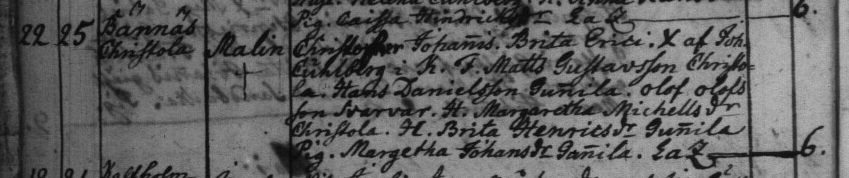 Pig. Caissa Hindrichs dr La Z 6.
22 25 Bannäs Malin Christopher Johañis. Brita Erici. X af Joh.
Christola Cuhlberg i K. F. Matts Gustavsson Christo-
la. Hans Danielsson Guñila. olof olofs
son Svarvar. H. Margaretha Michells dr
Christola. H. Brita Henrics dr Guñila
Pig. Margetha Johans dr Gañila. La Z 6.